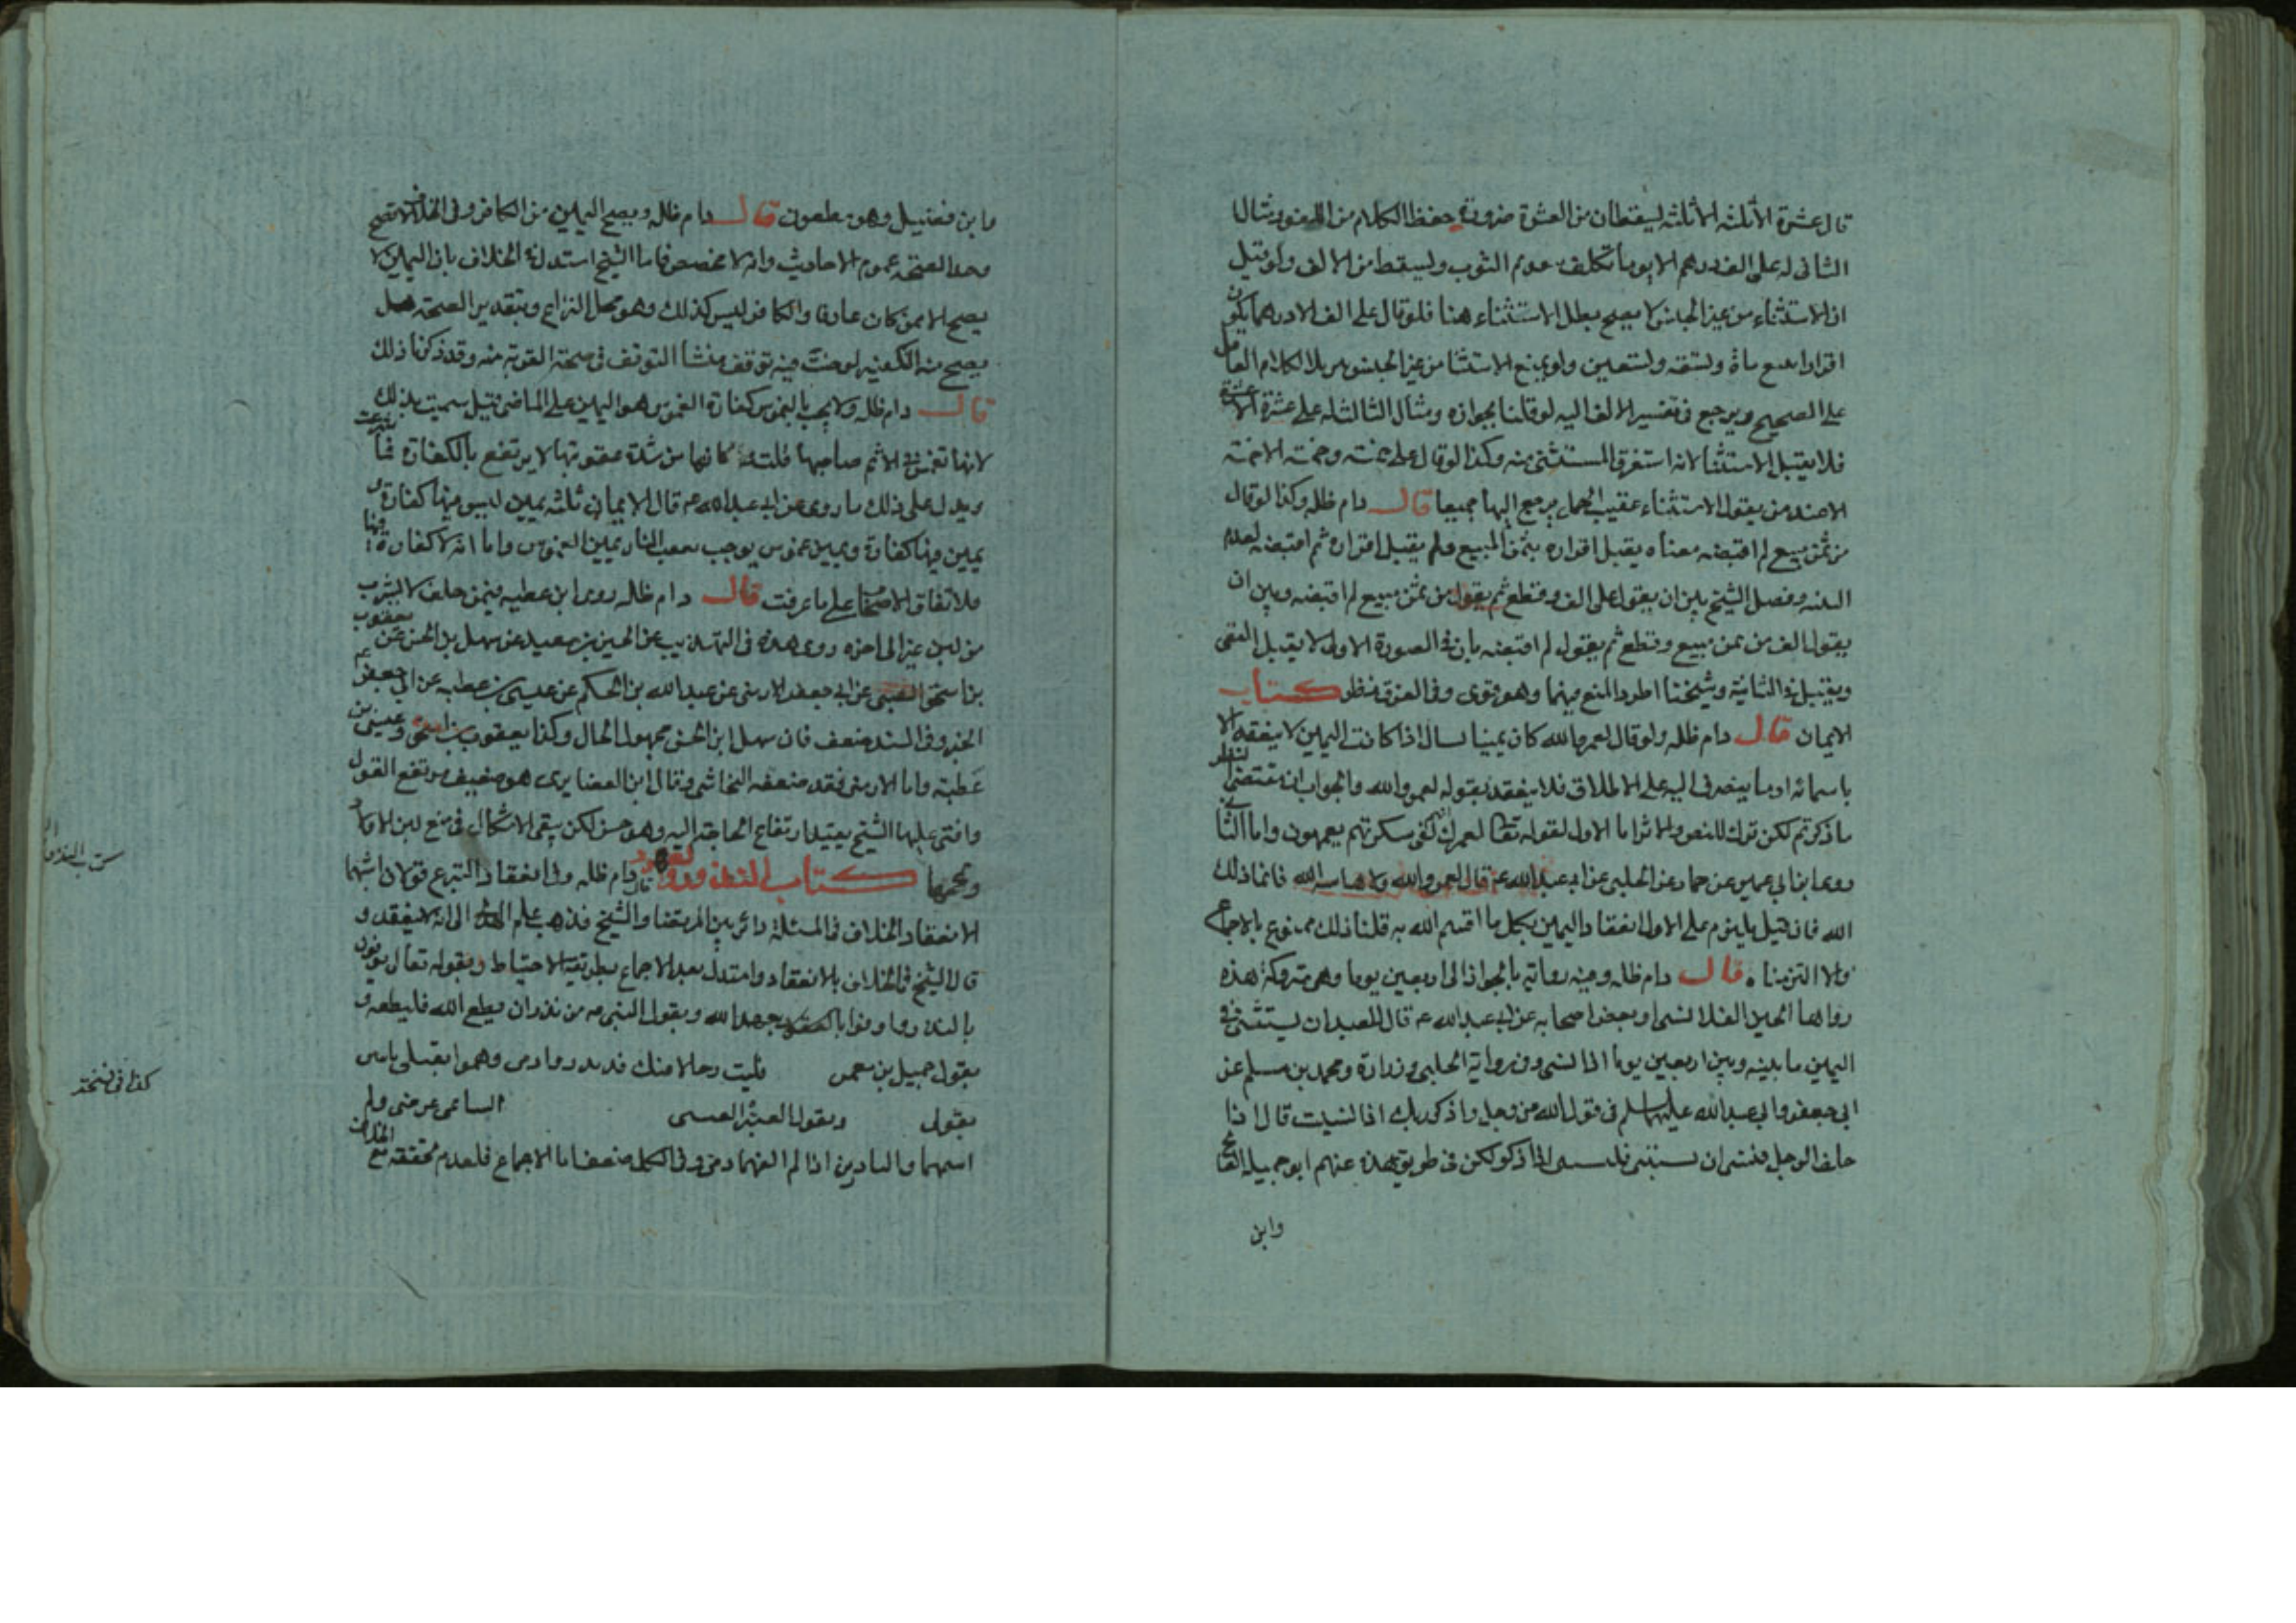 قال عشرة الا ثلثه الا ثلثه ليسقطان من العشرة ضرورة حفظا الكلام من
الثانى له على الف درهم الا يوما تكلف عدم الثوب وليسقط من الالف ولو قيل
ان الاستثناء من غير الجنس لا يصح بطل الاستثناء هنا فلو قال على الف الا درهما يكون
اقرارا بتسع مأة وتسعة وتسعين ولو يمنع الاستثنا من غير الجنس
على الصحيح ويرجع فى تفسير الالف اليه لو قلنا بجوازه ومثال الثالث له على عشرة الا عشرة
فلا يقبل الاستثنا لانه استغرق المستثنى منه وكذا لو قال على خمسة وخمسة الا خمسة
الا عند من يقول الاستثناء عقيب الجمل يرجع اليها جميعا قال دام ظله وكذا لو قال
من ثمن مبيع لم اقبضه معناه يقبل اقراره بثمن المبيع ولم يقبل اقراره ثم اقبضه لعدم
البينه وفصل الشيخ بين ان يقول على الف وقطع ثم يقول من ثمن مبيع لم اقبضه وبين ان
يقول الف من ثمن مبيع وقطع ثم يقول لم اقبضه بان فى الصورة الاولى لا يقبل
ويقبل فى الثانية وشيخنا اطرد المنع فيهما وهو قوى وفى الفرق نظر كتاب
الايمان قال دام ظله ولو قال لعمر الله كان يمينا اذا كانت اليمين لا ينعقد الا
باسمائه او ما ينصرف اليه على الاطلاق فلا ينعقد بقوله لعمر والله والجواب ان مقتضى النظر
ما ذكرتم لكن ترك للنص والاثر اما الاول لقوله تعا لعمرك لفى سكرتهم يعمهون واما الثا
روى ابن ابى عمير عن حماد عن الحلبى عن ابى عبد الله ع قال لعمر والله ولا هاء الله فانما ذلك
الله فان قيل يلزم على الاول انعقاد اليمين بكل ما اقسم الله به قلنا ذلك ممنوع بالاجماع
ولا التزمناه قال دام ظله وفيه رواية بالجواز الى اربعين يوما وهى متروكة هذه
رواها الحسين القلانسى او بعض اصحابه عن ابى عبد الله ع قال للعبد ان يستثنى فى
اليمين ما بينه وبين اربعين يوما اذا نسى وفى رواية الحلبى وزرارة ومحمد بن مسلم عن
ابى جعفر وابى عبد الله عليهما السلم فى قول الله عز وجل واذكر ربك اذا نسيت قال اذا
حلف الرجل فنسى ان يستثنى فليستثن اذا ذكر لكن فى طريق هذه عنهم ابو جميلة
وابن
وابن فضيل وهو مطعون قال دام ظله ويصح اليمين من الكافر وفى الخلاف لا تصح
وجه الصحة عموم الاحاديث وانه لا مخصص فاما الشيخ استدل فى الخلاف بان اليمين لا
يصح الا ممن كان عارفا والكافر ليس كذلك وهو محل النزاع وبتقدير الصحة هل
يصح منه التكفير لو حنث فيه توقف منشأ التوقف فى صحة القربة منه وقد ذكرنا ذلك
قال دام ظله ولا يجب بالغموس كفارة الغموس هو اليمين على الماضى قيل سميت بذلك
لانها تغمس فى الاثم صاحبها قلت كانها من شدة عقوبتها لا يرتفع بالكفارة
ويدل على ذلك ما روى عن ابى عبد الله ع قال الايمان ثلثه يمين ليس فيها كفارة و
يمين فيها كفارة ويمين غموس يوجب النار يمين الغموس واما انه لا كفارة فيها
فلاتفاق الاصحاب على ما عرفت قال دام ظله روى ابن عطيه فيمن حلف لا يشرب
من لبن عنز الى اخره روى هذه فى التهذيب عن الحسين بن سعيد عن سهل بن الحسن عن يعقوب
بن اسحق الضبى عن ابى جعفر الارمنى عن عبد الله بن الحكم عن عيسى بن عطيه عن ابى جعفر ع
الخبر وفى السند ضعف فان سهل ابن الحسن مجهول الحال وكذا يعقوب بن اسحق وعيسى بن
عطية واما الارمنى فقد ضعفه النجاشى وقال ابن الغضايرى هو ضعيف مرتفع القول
وافتى عليها الشيخ بقيد ارتفاع الحاجة اليه وهو حسن لكن يبقى الاشكال فى منع لبن الاولاد
ولحمها كتاب النذور والعهود قال دام ظله وفى انعقاد التبرع قولان اشبهما
الانعقاد الخلاف فى المسئلة دائر بين المرتضا والشيخ فذهب علم الهدى الى انه لا ينعقد و
قال الشيخ فى الخلاف بالانعقاد واستدل بعد الاجماع بطريقة الاحتياط وبقوله تعالى يوفون
بالنذر واوفوا بعهد الله وبقول النبى ص من نذر ان يطع الله فليطعه و
بقول جميل بن معمر فليت رجلا منك قد نذروا دمى وهموا بقتلى
بقول وبقول
اذا لم القهما دمى وفى الكل ضعف اما الاجماع فلعدم تحققه مع الخلاف
كذا فى نسخة